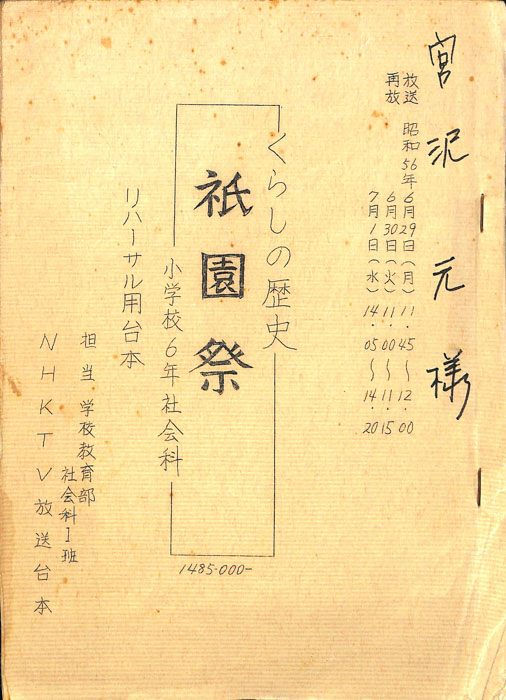 宮沢元様
放送 昭和56年6月29日(月) 11.45〜12.00
再放 6月30日(火) 11.00〜11.15
7月1日(水) 14.05〜14.20
くらしの歴史
祇園祭
小学校6年社会科
リハーサル用台本
1485-000-
担当 学校教育部
社会科1班
NHKTV放送台本